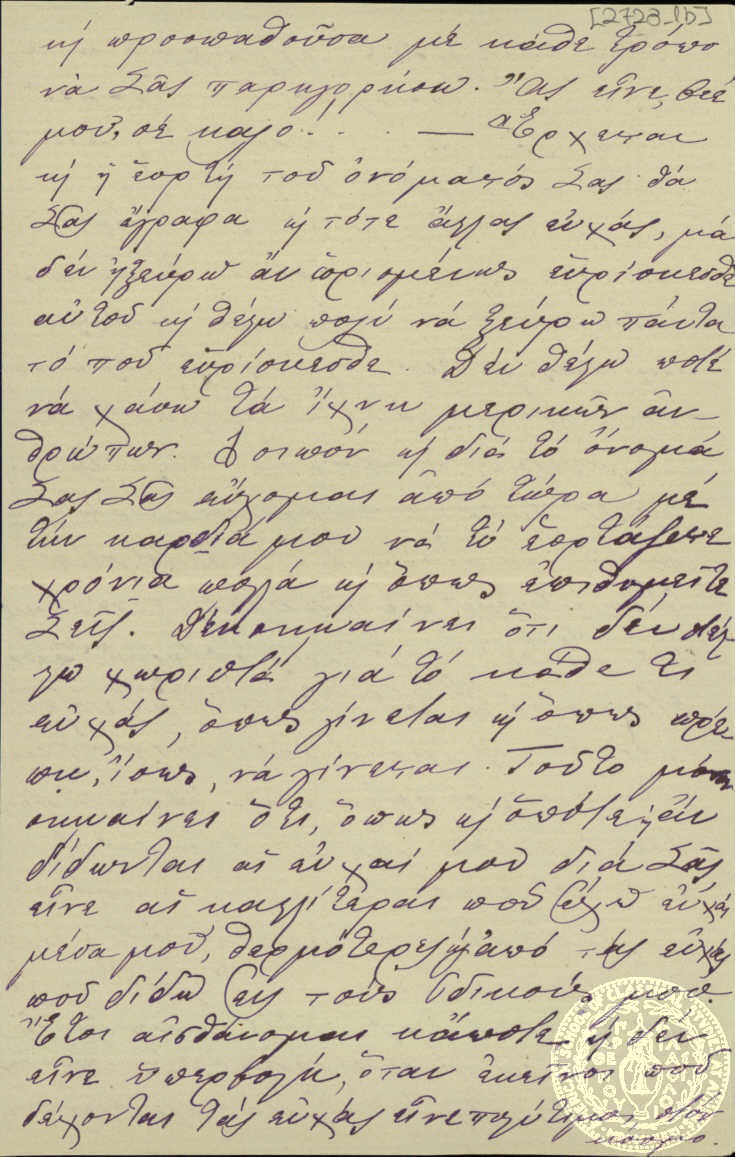 [2728_1b]
κ' προσπαθοῦσα μέ κάθε τρόπο
νά Σᾶς παρηγορήσω. Ἄς εἶνε, θεέ
μου, σέ καλό! . . . — Ἔρχεται
κ' ἡ ἑορτή τοῦ ὀνόματός Σας θά
Σᾶς ἔγραφα κ' τότε ἄλλας εὐχάς, μά
δέν ἠξεύρω ἄν ὡρισμένως εὑρίσκεσθε
αὐτοῦ κ' θέλω πολύ νά ξεύρω πάντα
τό ποῦ εὑρίσκεσθε. Δέν θέλω ποτέ
νά χάσω τά ἴχνη μερικῶν ἀν-
θρώπων. Λοιπόν κ' διά τό ὄνομά
Σας Σᾶς εὔχομαι ἀπό τώρα μέ
τήν καρδιά μου νά τό ἑορτάζετε
χρόνια πολλά κ' ὅπως ἐπιθυμεῖτε
Σεῖς. Δέν σημαίνει ὅτι δέν στέλ
λω χωριστά γιά τό κάθε τι
εὐχάς, ὅπως γίνεται κ' ὅπως πρέ-
πει, ἴσως, νά γίνεται. Τοῦτο μόνον
σημαίνει ὅτι, ὅπως κ' ὁπότε ἐάν
δίδωνται αἱ εὐχαί μου διά Σᾶς
εἶνε αἱ καλλίτεραι πού ἔχω εὐχάς
μέσα μου, θερμότερες κ' ἀπό τάς εὐχάς
πού δίδω εἰς τούς ἰδικούς μου.
Ἔτσι αἰσθάνομαι κάποτε κ' δέν
εἶνε ὑπερβολή, ὅταν ἐκεῖνοι πού
δέχονται τάς εὐχάς εἶνε πολύτιμοι στόν
κόσμο.